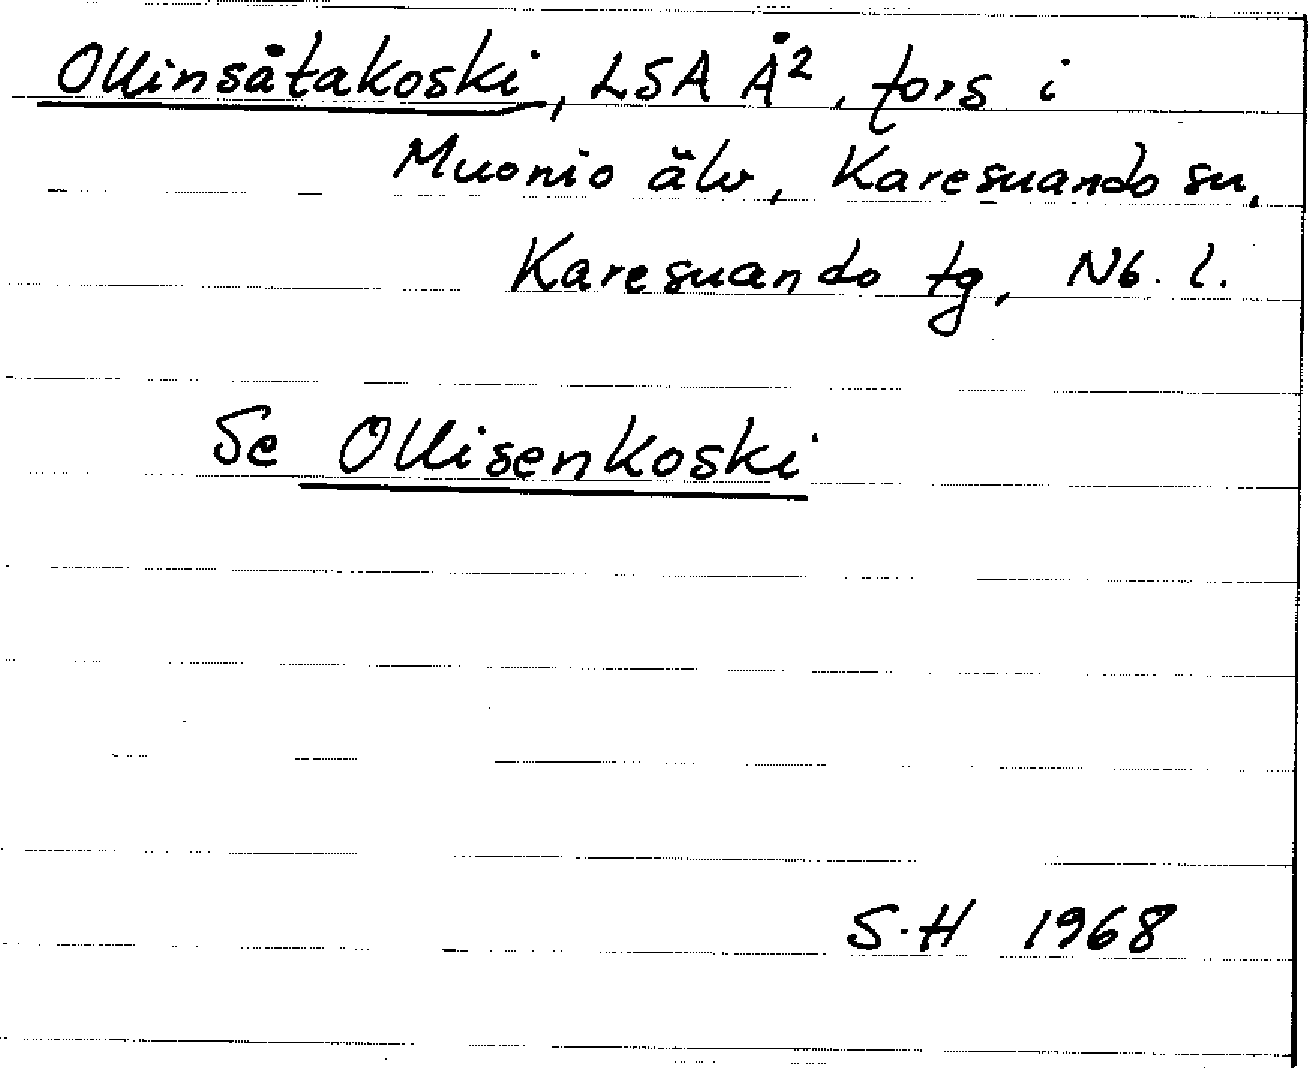 Ollinsåtakoski, LSA Å², fors i
Muonio älv, Karesuando sn,
Karesuando tg, Nb. l.
Se Ollisenkoski
S-H 1968